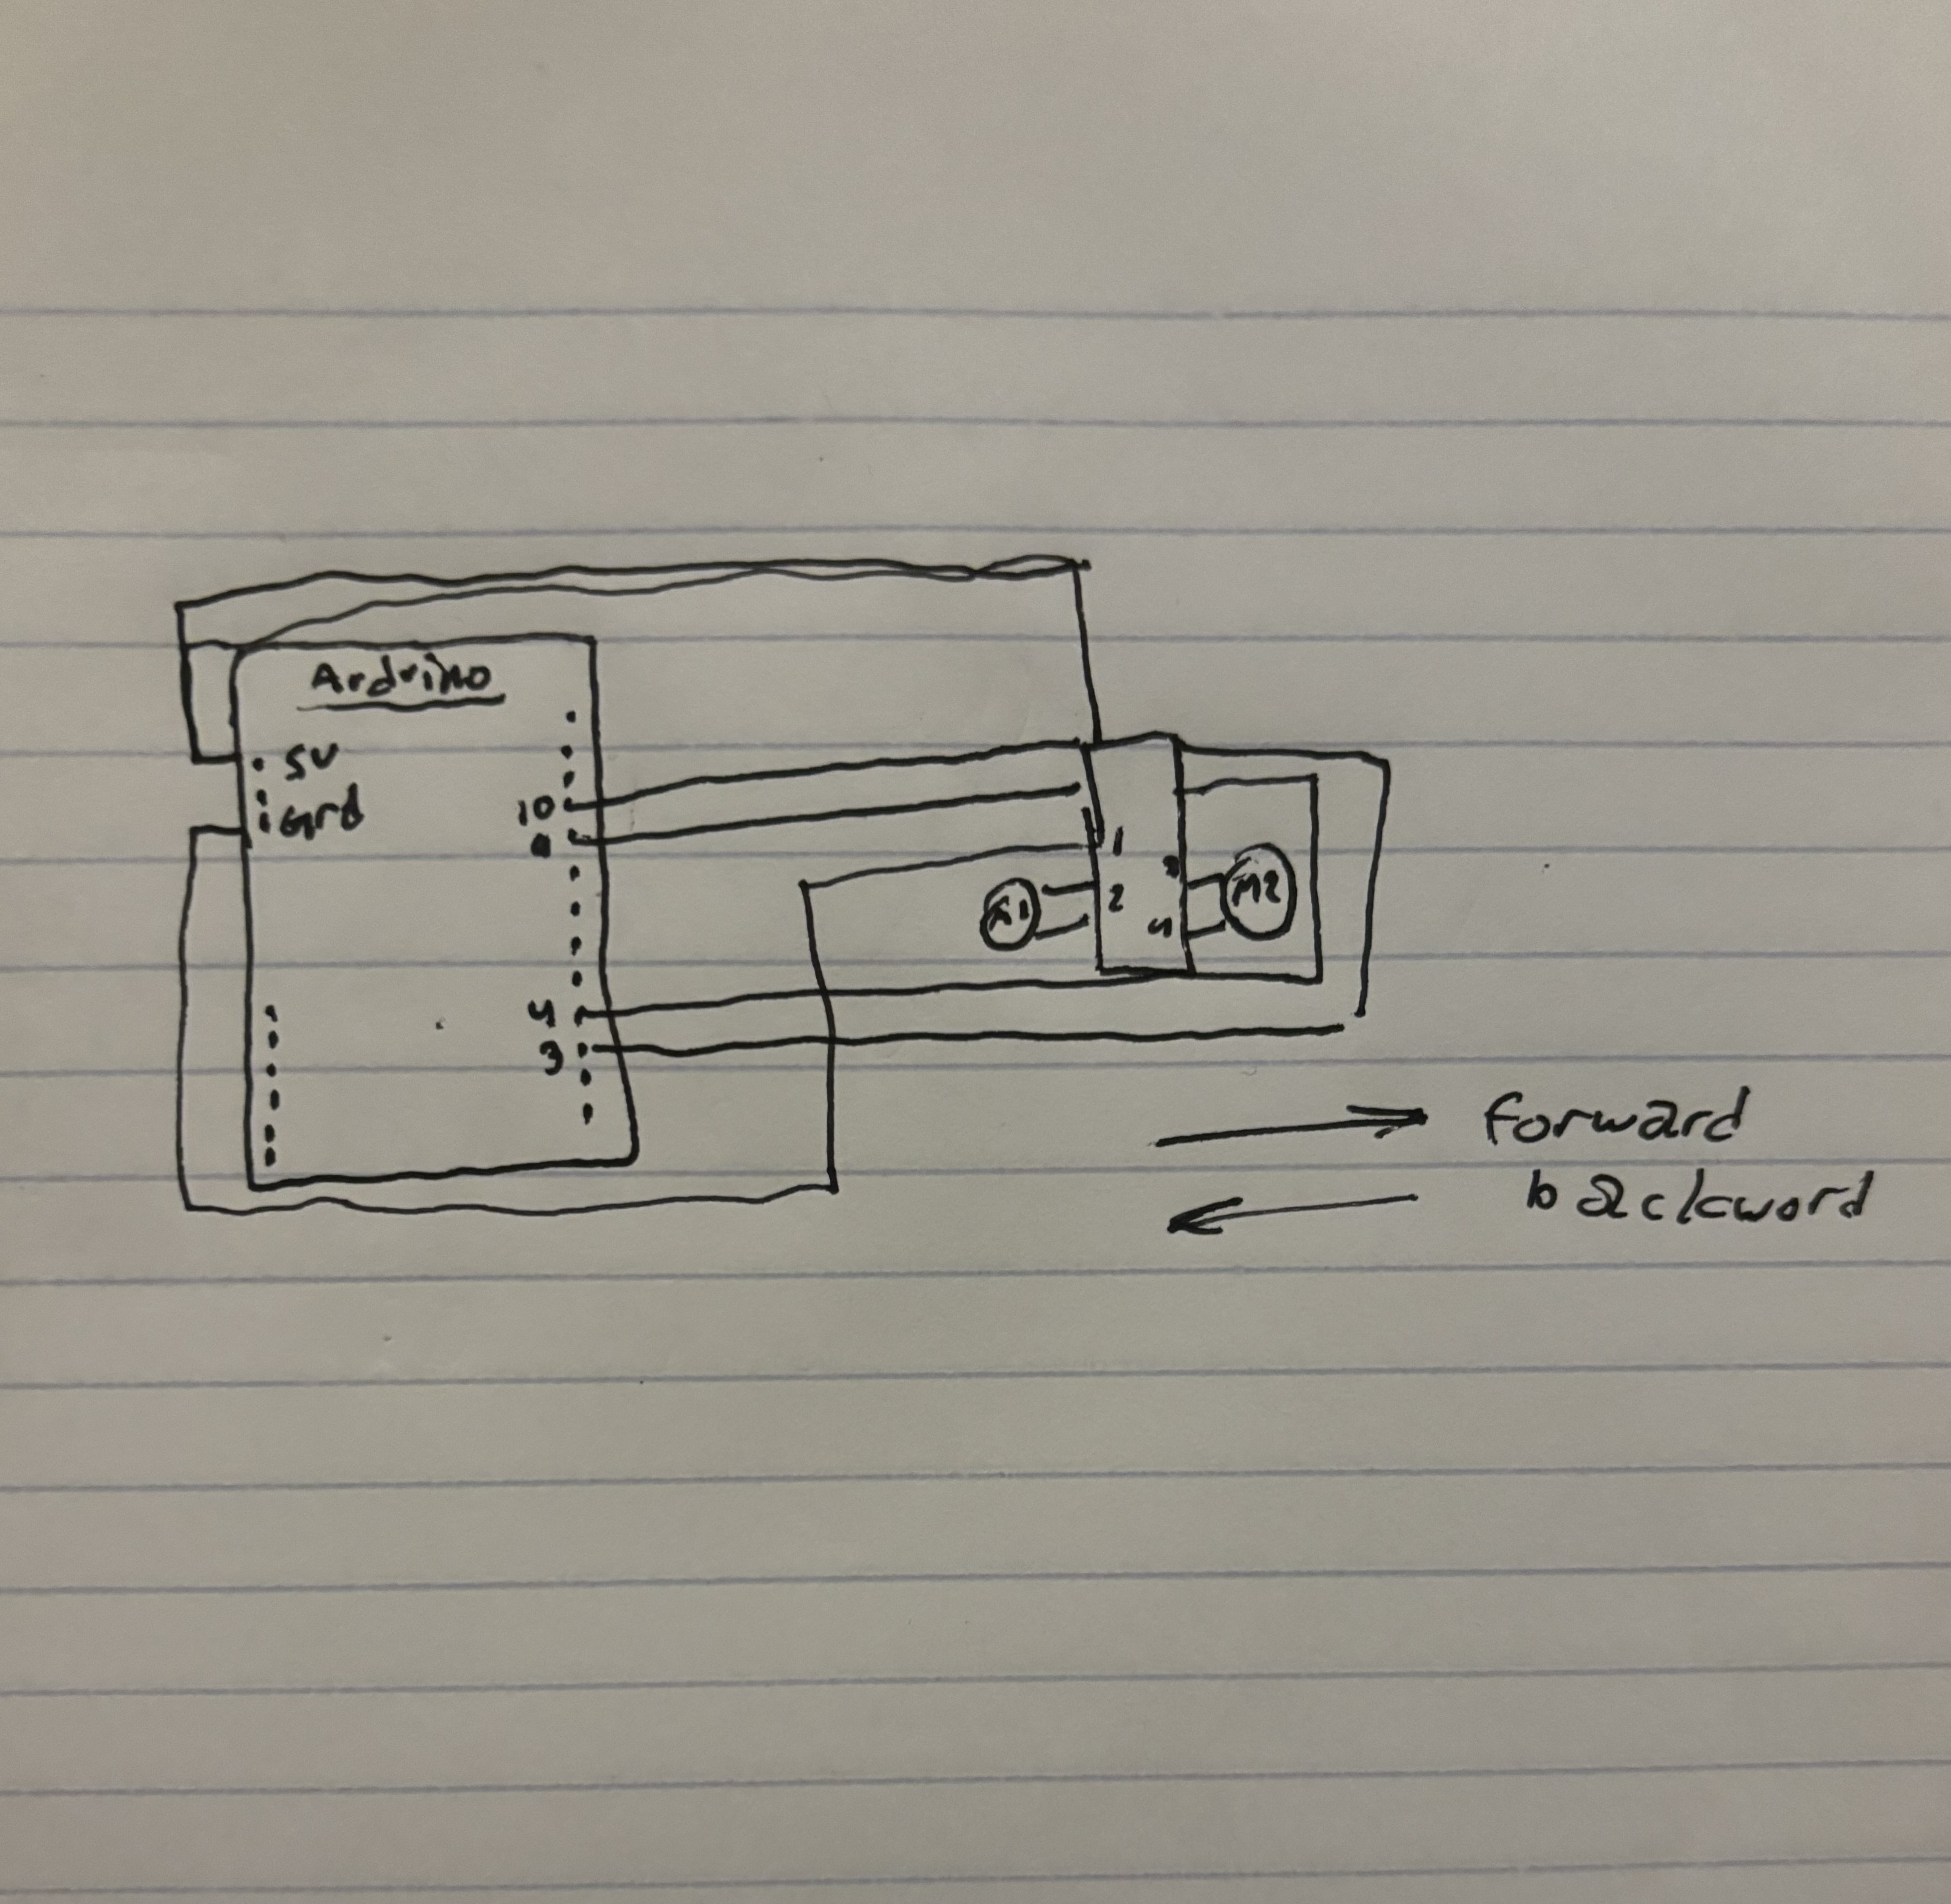 Arduino
5V
Grd
10
9
1
2
3
4
M1
M2
4
3
forward
backword